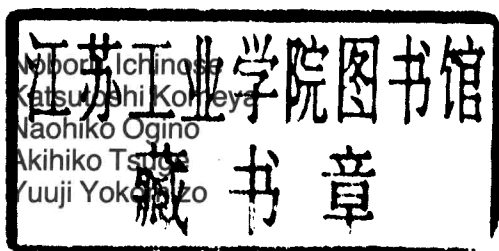 江苏工业学院图书馆
藏书章
Noboru Ichinose
Katsutoshi Komeya
Naohiko Ogino
Akihiko Tsuge
Yuuji Yokomizo